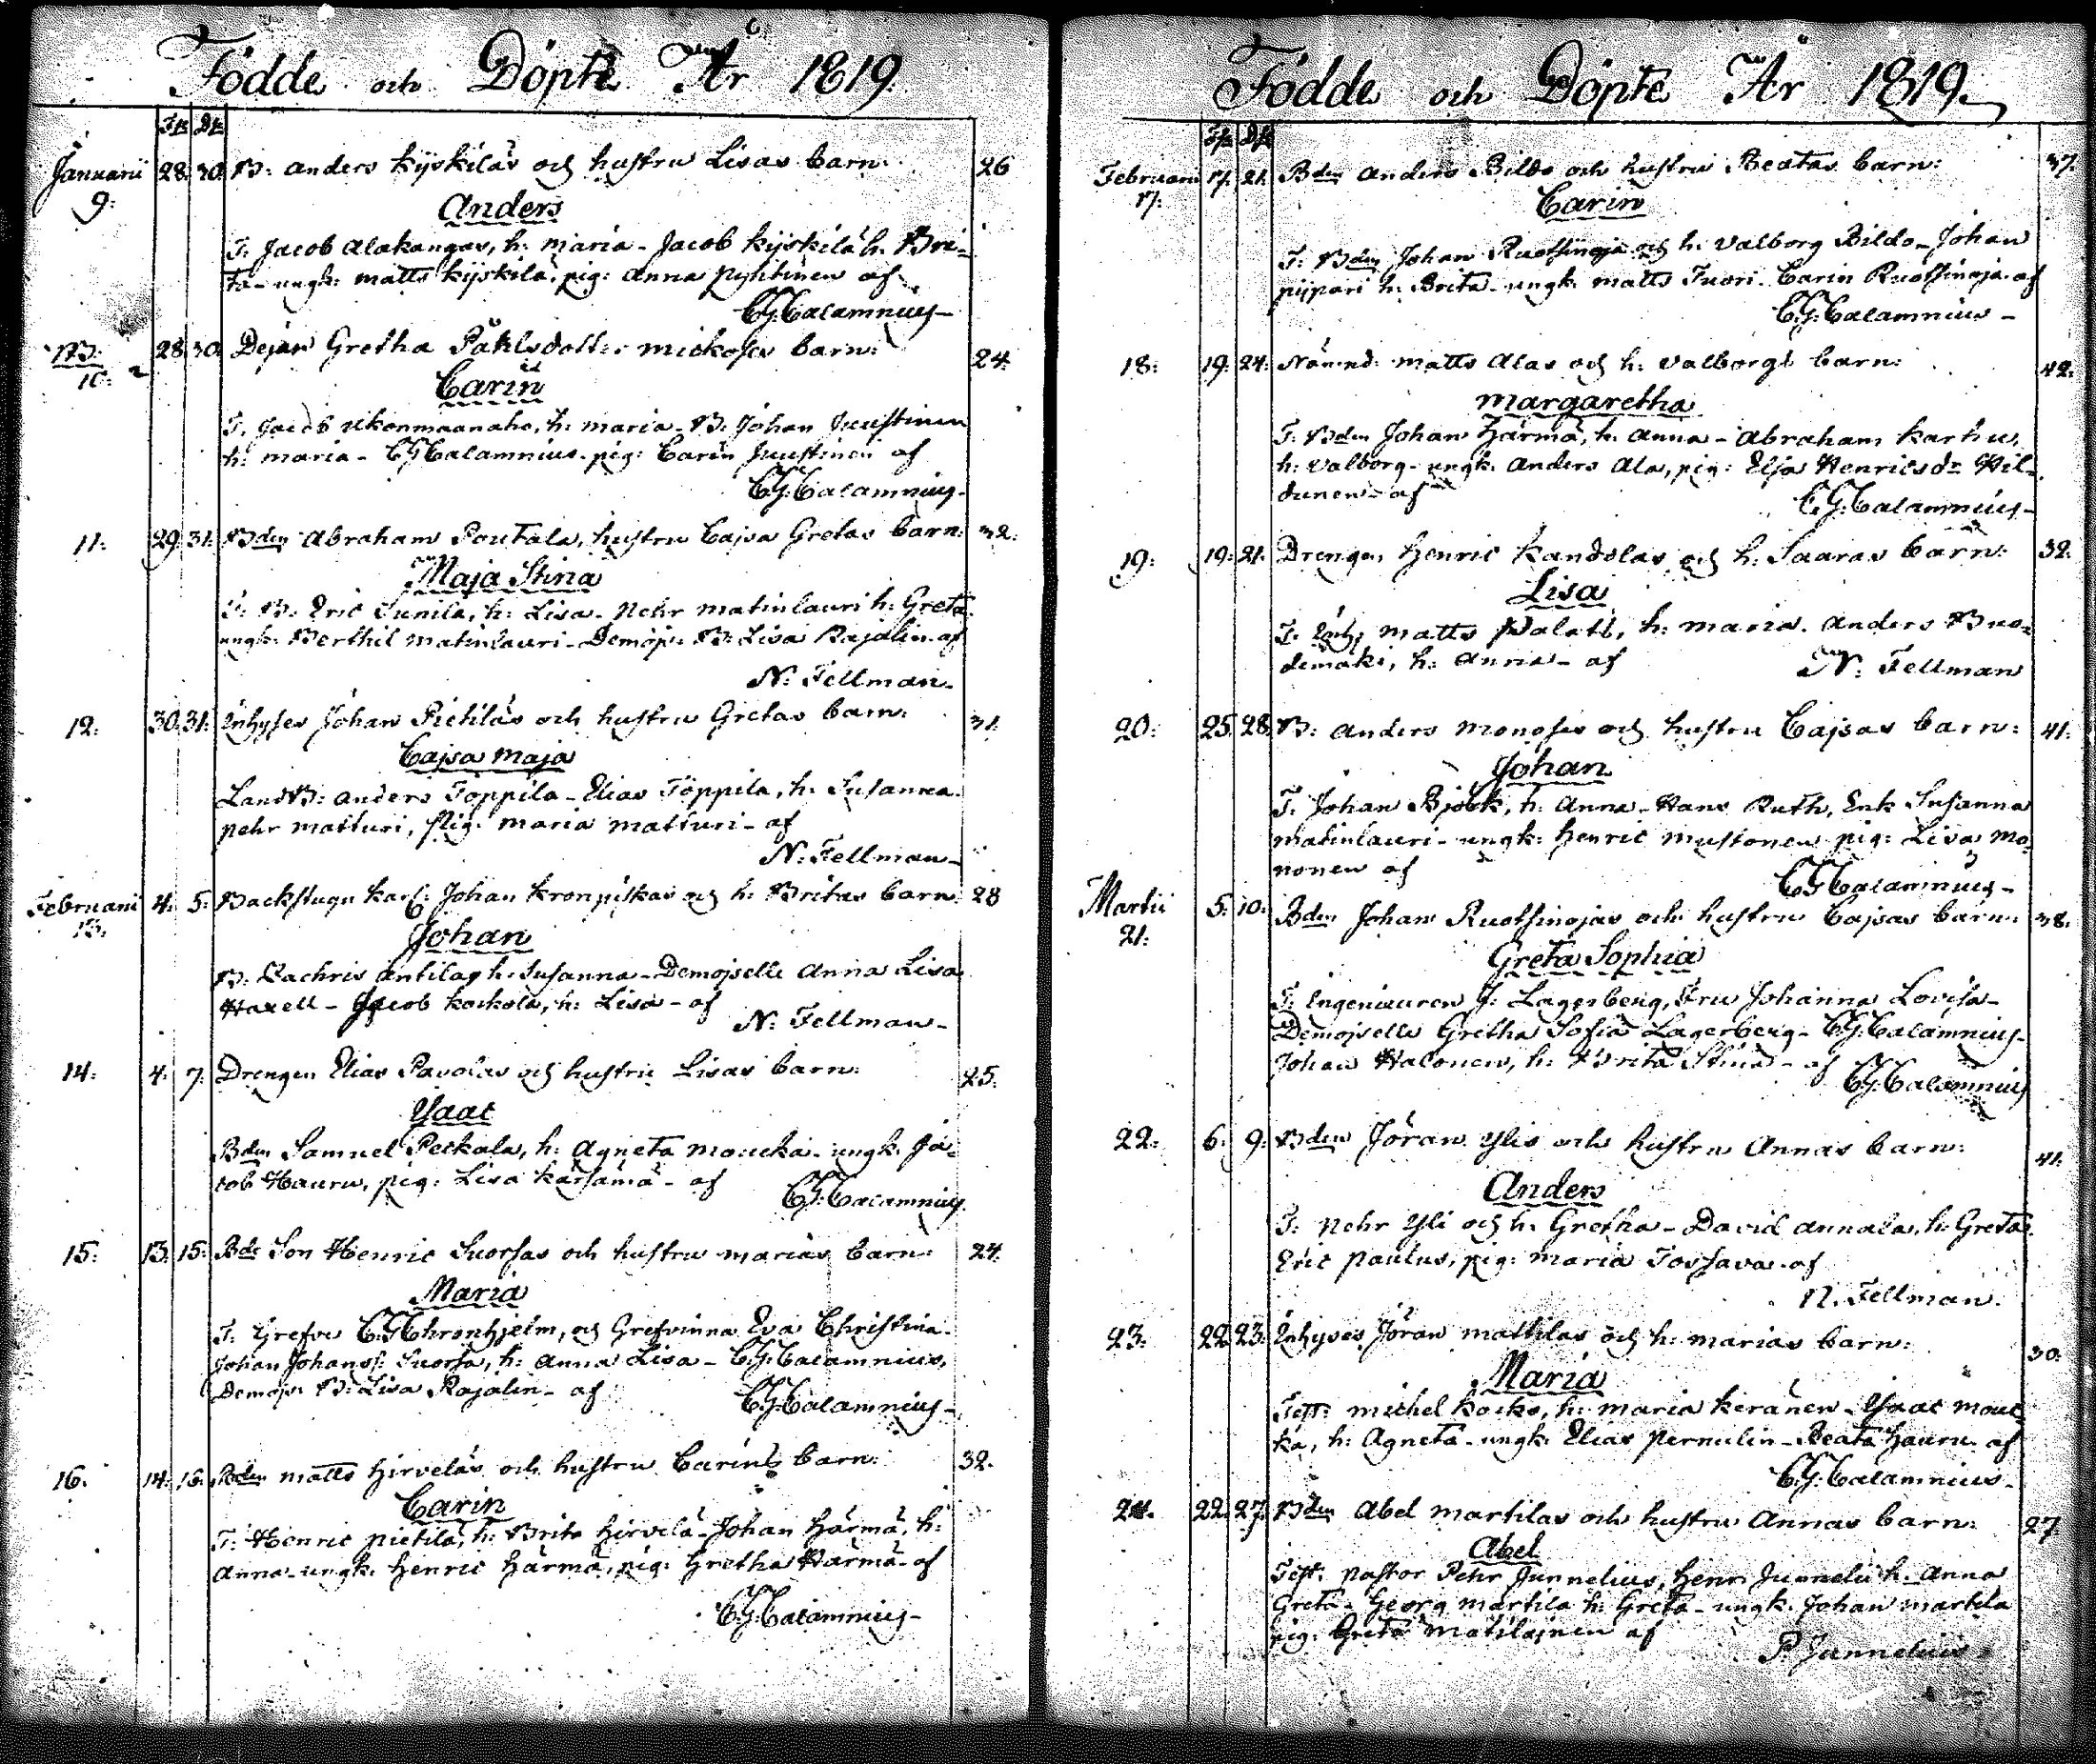 Födde och Döpte År 1819.
Januarii 28. 30. B: Anders Kyskiläs och hustru Lisas barn: 26
9: Anders
T. Jacob Alakangas, h: Maria - Jacob Kyskilä h. Bri-
ta - ungk: Matts Kyskilä, pig: Anna Pyhtinen af
C.G. Calamnius -
NB: 28. 30. Dejan Gretha Påhlsdotter Mickoses barn: 24.
10: Carin
T. Jacob Ukonmaanaho, h: Maria - B: Johan Juustinen
h: Maria - C.G. Calamnius. pig: Carin Juustinen af
C.G. Calamnius -
11: 29. 31. Bden Abraham Poutala, hustru Cajsa Gretas barn: 32.
Maja Stina
T. B: Eric Junila, h: Lisa - Pehr Matinlauri h: Greta
ungk: Berthil Matinlauri - Demojs: B: Lisa Rajalin. af
N: Fellman -
12: 30. 31. Inhyses Johan Pietiläs och hustru Gretas barn: 31.
Cajsa Maja
LandB: Anders Toppila - Elias Töppila, h: Susanna.
Pehr Matturi, pig: Maria Matturi - af
N: Fellman -
Februarii 4: 5: Backstugu karl: Johan Kronpiskas och h: Britas barn 28
13. Johan
B: Zachris Antilag h: Susanna - Demojselle Anna Lisa
Haxell - Jacob Koskola, h: Lisa - af
N: Fellman -
14: 4: 7: Drengen Elias Pavolas och hustru Lisas barn: 25.
Isaac
Bden Samuel Peckala, h: Agneta Moucka - ungk. Ja-
cob Hauru, pig: Lisa Kärsämä - af C.G. Calamnius
15: 13. 15: Bde Son Henric Suorsas och hustru Marias barn: 24.
Maria
T: Grefve C.G. Chronhjelm, och Grefvinna Eva Christina -
Johan Johanss: Suorsa, h: Anna Lisa - C.G. Calamnius,
Demojs: B: Lisa Rajalin - af C.G. Calamnius -
16. 14. 16. Bden Matts Hirveläs och hustru Carins barn: 32.
Carin
T: Henric Pietilä, h: Brita Hirvelä - Johan Härmä, h:
Anna - ungk. Henric Härmä, pig: Gretha Härmä - af
C.G. Calamnius -
Födde och Döpte År 1819.
Februarii 17. 21. Bden Anders Bildo och hustru Beatas barn: 37.
17: Carin
T: Bden Johan Ruotsinoja och h: Valborg Bildo - Johan
Pijpari h: Brita - ungk. Matts Tuori - Carin Ruotsinoja. af
C.G. Calamnius -
18: 19. 24. Nämnd: Matts Alas och h: Valborgs barn: 42.
Margaretha
T: Bden Johan Härmä, h: Anna - Abraham Karhu,
h: Valborg - ungk. Anders Ala, pig: Elsa Henricsdr Hil-
dunen - af C.G. Calamnius -
19: 19. 21. Drengen Henric Kandolas och h: Saaras barn: 32.
Lisa
T: Inh: Matts Palati, h: Maria. Anders Buo-
demäki, h: Anna - af N: Fellman
20: 25. 28. B: Anders Monoses och hustru Cajsas barn: 41.
Johan
T: Johan Björk, h: Anna - Hans Ruth, Enk Susanna
Matinlauri - ungk: Henric Mustonen pig: Lisa Mo-
nonen af C.G. Calamnius -
Martii 5: 10. Bden Johan Ruotsinojas och hustru Cajsas barn: 38.
21: Greta Sophia
T: Ingenieuren J: Lagerberg, Fru Johanna Lovisa -
Demojselle Gretha Sofia Lagerberg - C.G. Calamnius -
Johan Halonen, h: Brita Stina - af C.G. Calamnius
22: 6: 9: Bden Jöran Ylis och hustru Annas barn: 41.
Anders
T: Pehr Yli och h: Gretha - David Annala, h: Greta.
Eric Paulus, pig: Maria Tossava. af
N. Fellman.
23: 22. 23. Inhyses Jöran Mattilas och h: Marias barn: 30.
Maria
Test: Michel Kocko, h: Maria Keränen - Isaac Mouc-
ka, h: Agneta - ungk. Elias Pernulin - Beata Hauru. af
C.G. Calamnius -
24. 22. 27. Bden Abel Martilas och hustru Annas barn: 27
Abel
Test: Pastor Pehr Junnelius, Henr: Junnelii h. Anna
Greta - Georg Martila h: Greta - ungk. Johan Martila
pig: Greta Matilainen af
P. Junnelius